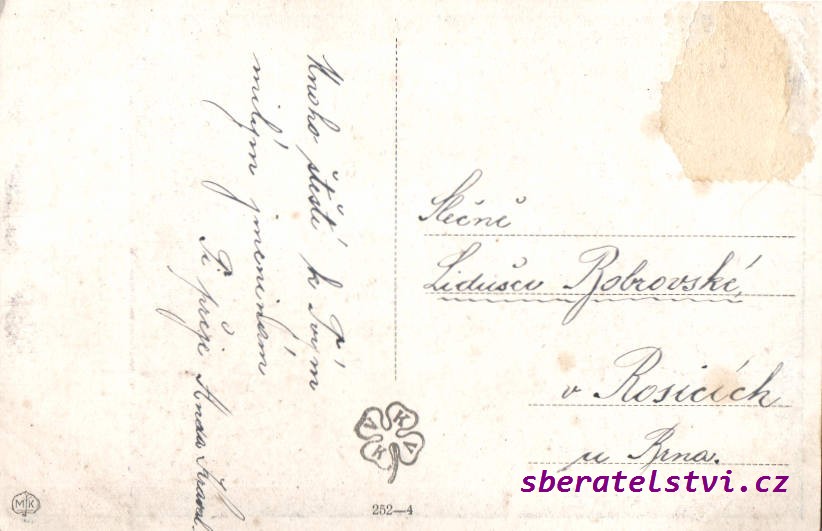 Mnoho štěstí k Tvým
milým jmeninám
Ti přeje Anda
Slečně
Lidušce Bobrovské,
v Rosicích
u Brna.
KVKV
MK
252—4
sberatelstvi.cz